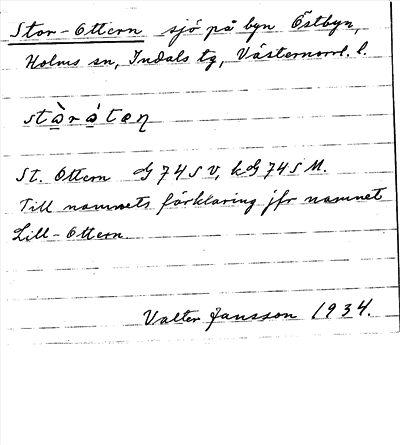 Stor-Ottern sjö på byn Östbyn,
Holms sn, Indals tg, Västernorrl. l.
stɑ̀rɑ́tæn
St. Ottern G 74 S V, kG 74 S M.
Till namnets förklaring jfr namnet
Lill-Ottern.
Valter Jansson 1934.